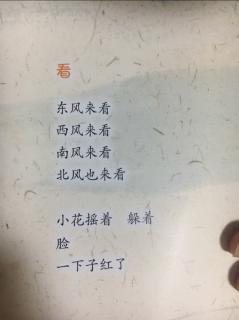 看
东风来看
西风来看
南风来看
北风也来看
小花摇着　躲着
脸
一下子红了